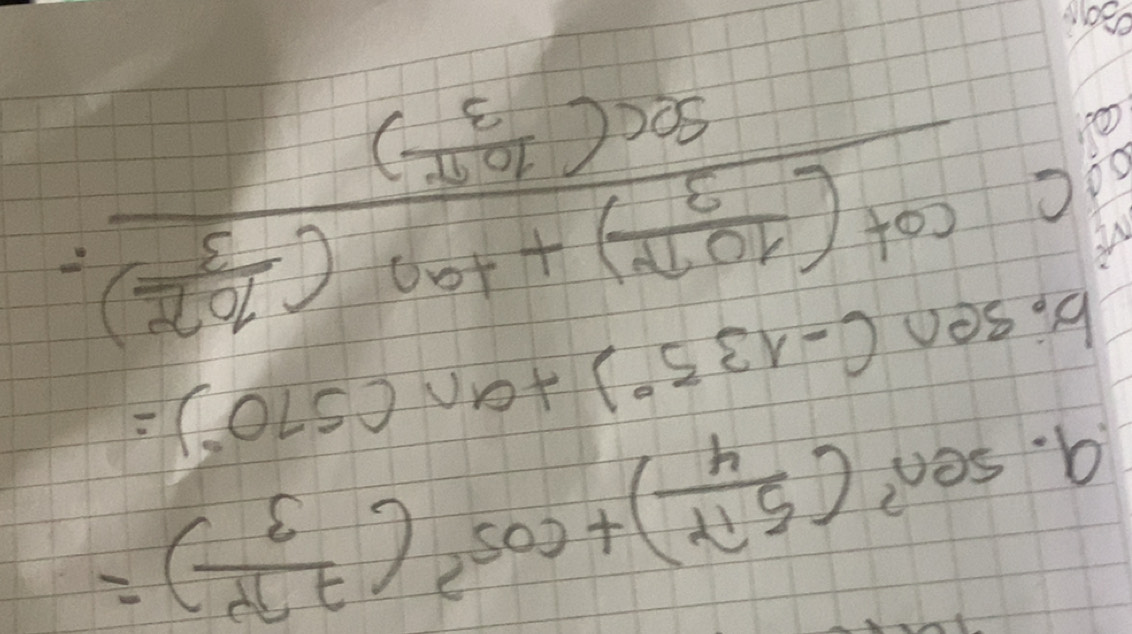 a. sen² (5π/4) + cos² (7π/3) =
b. sen (-135°) tan (570°) =
c cot (10π/3) + tan (10π/3) =
sec (10π/3)